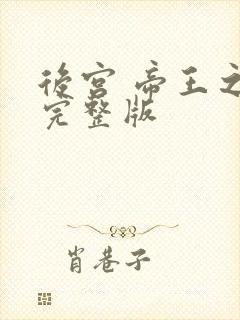 後宮 帝王之
完整版
肖巷子